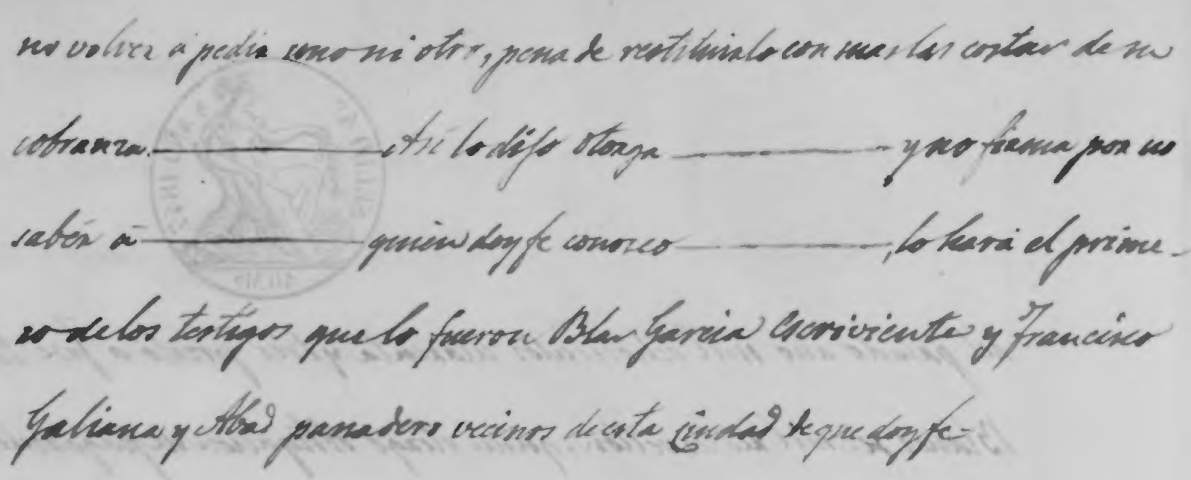 no volver á pedir uno ni otro, pena de restituirlo con mas las costas de su
cobranza. Así lo dijo otorga y no firma por no
saber á quien doy fe conosco, lo hará el prime-
ro de los testigos que lo fueron Blas Garcia escriviente y Francisco
Galiana y Abad panadero vecinos de esta ciudad de que doy fe-